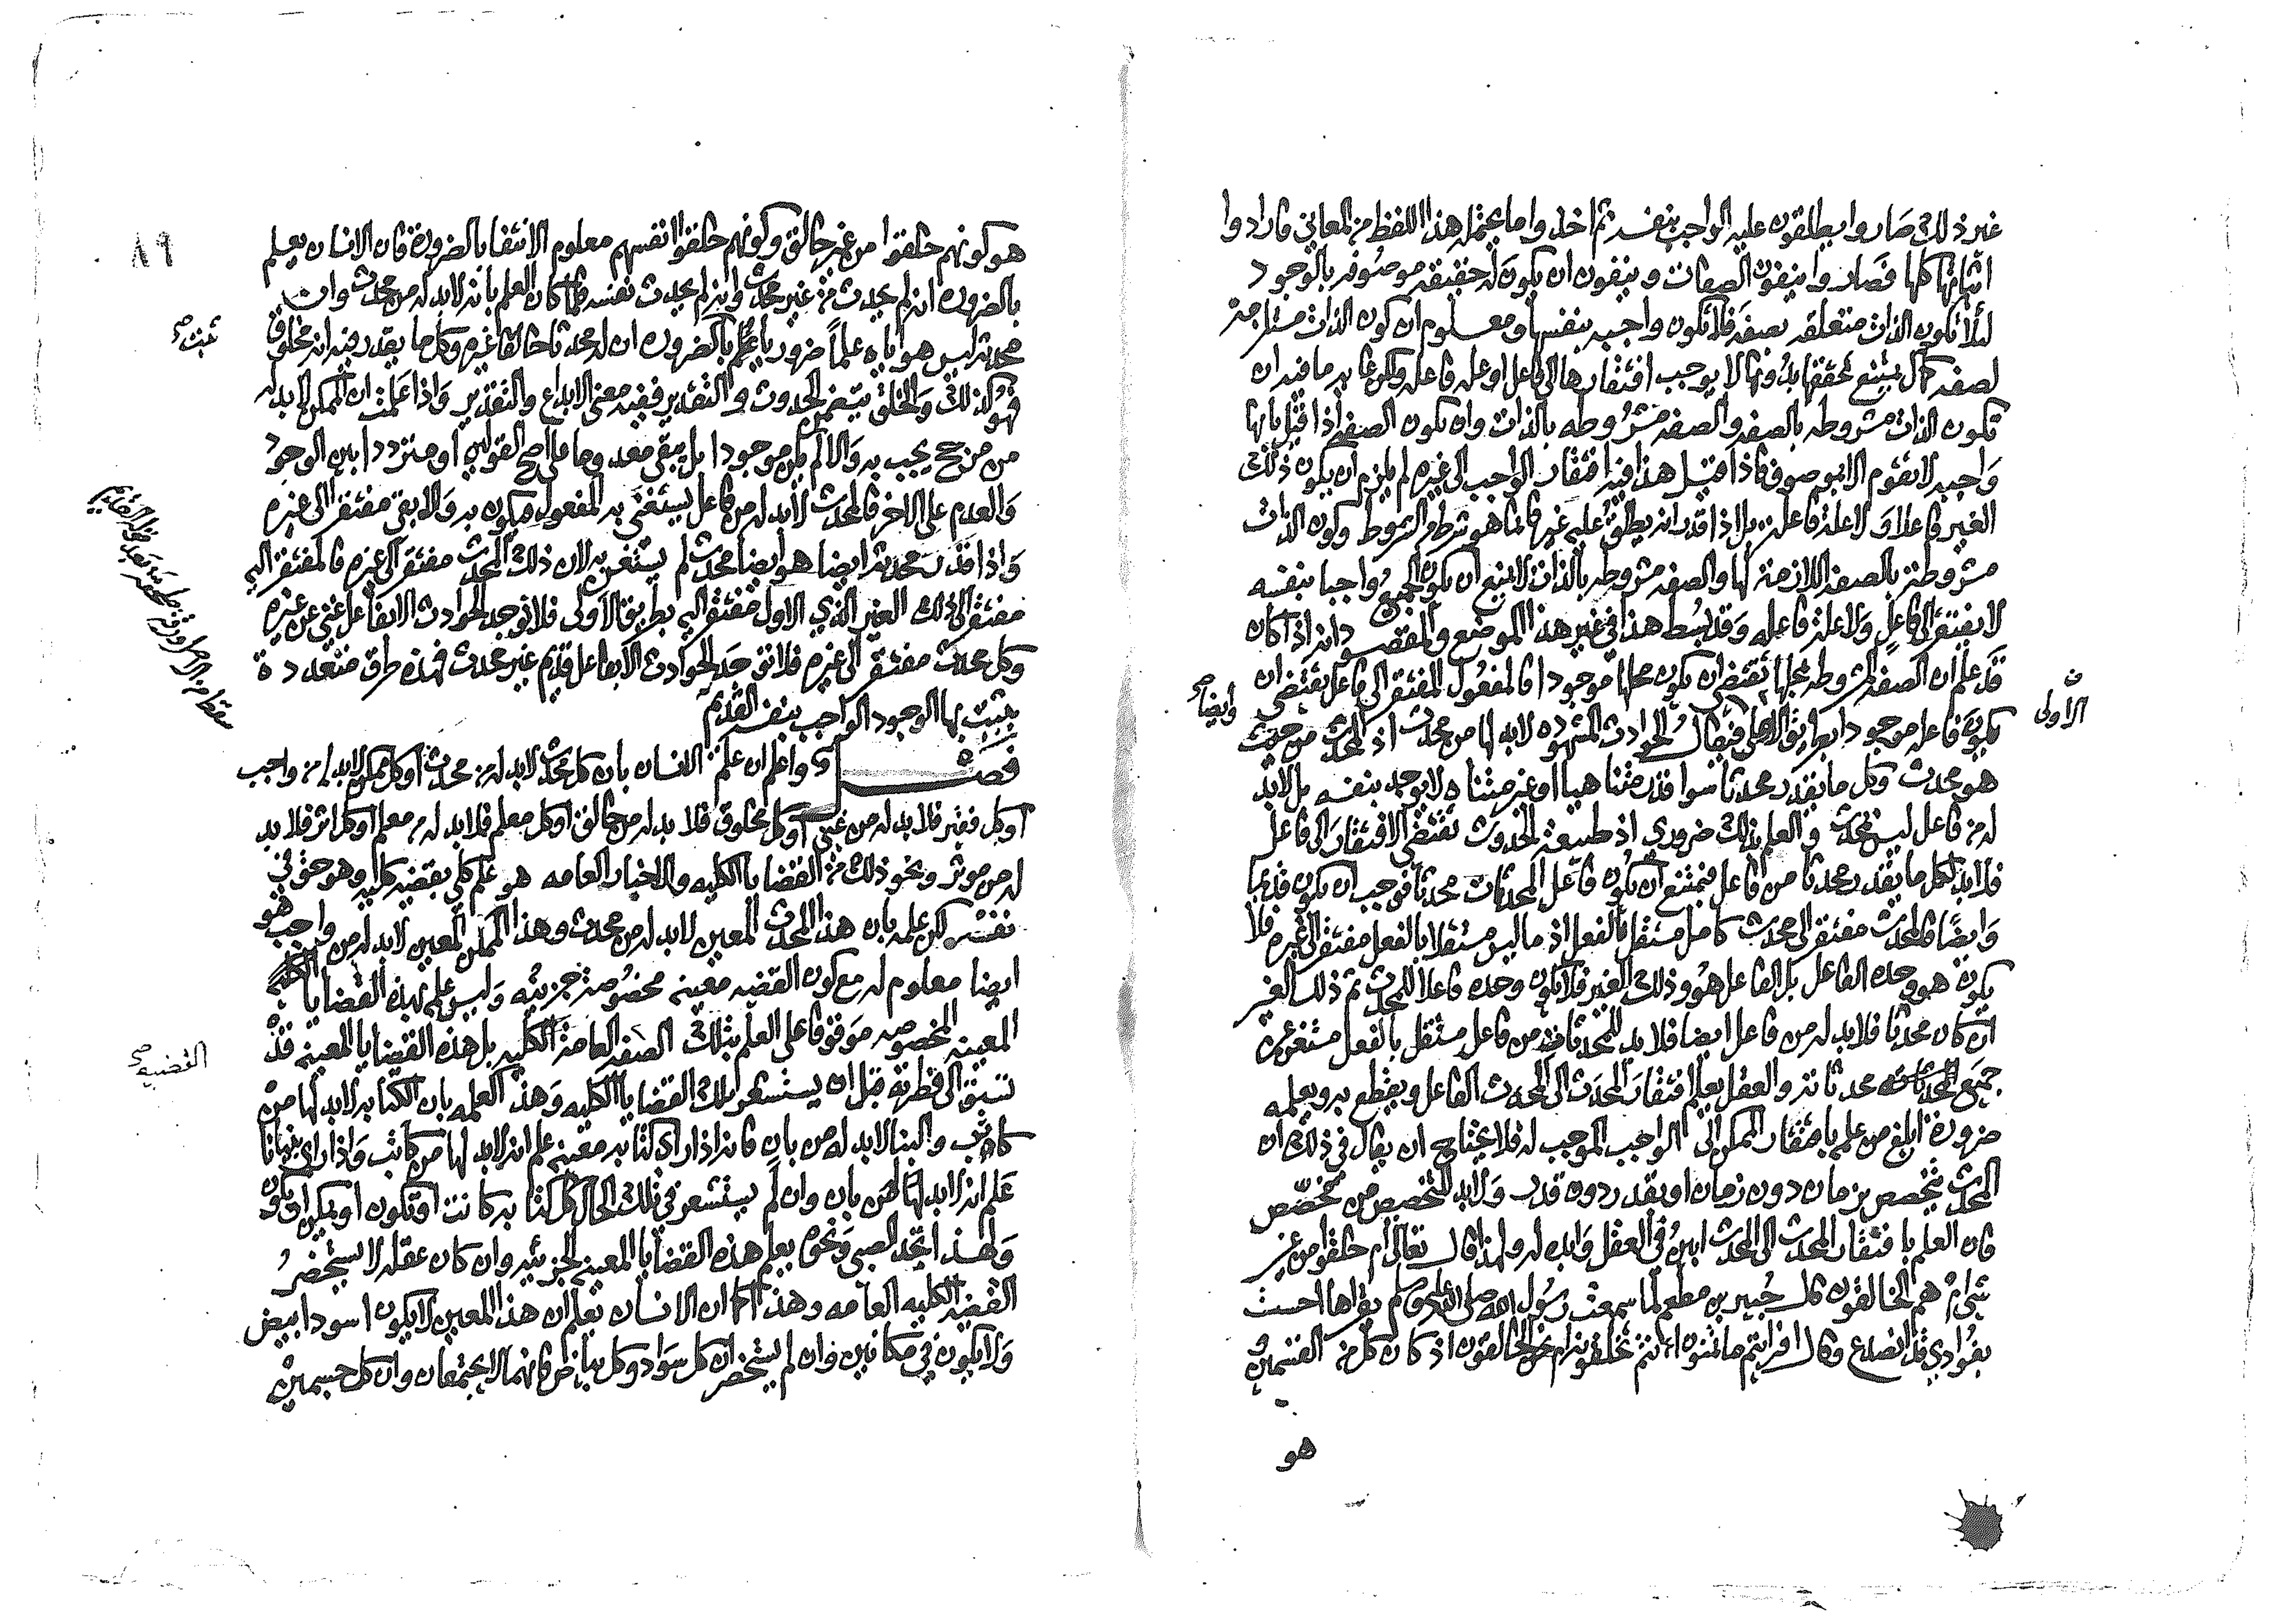 غير ذلك صاروا يطلقون عليه الواجب بنفسه ثم اخذوا ما يحتمله هذا اللفظ من المعاني فارادوا
اثباتها كلها فصاروا ينفون الصفات وينفون ان يكون له حقيقه موصوفه بالوجود
لئلا تكون الذات متعلقه بصفه فلا تكون واجبه بنفسها ومعلوم ان كون الذات مستلزمة
لصفه كمال يمتنع تحققها بدونها لا يوجب افتقارها الى فاعل او عله فاعله ولكن غايه ما فيه ان
تكون الذات مشروطه بالصفه والصفه مشروطه بالذات وان يكون الصفه اذا قيل بانها
واجبه لا تقوم الا بموصوف فاذا قيل هذا فيه افتقار الواجب الى غيره لم يلزم ان يكون ذلك
الغير فاعلا ولا علة فاعلة بل اذا قدر انه يطلق عليه غير فانما هو شرط من الشروط وكون الذات
مشروطة بالصفه اللازمة لها والصفه مشروطه بالذات لا يمنع ان يكون الجميع واجبا بنفسه
لا يفتقر الى فاعل ولا علة فاعله وقد بسط هذا في غير هذا الموضع والمقصود انه اذا كان
قد علم ان الصفه المشروطه بمحلها تقتضي ان يكون محلها موجودا فالمفعول المفتقر الى فاعل يقتضي ان
وأيضا صح
ن
الاولى
يكون فاعله موجودا بطريق الاولى فيقال الحوادث المشهوده لابد لها من محدث اذ المحدث من حيث
هو محدث وكل ما يقدر محدثا سوا قدر متناهيا او غير متناه لا يوجد بنفسه بل لابد
له من فاعل ليس بمحدث والعلم بذلك ضروري اذ طبيعة الحدوث تقتضي الافتقار الى فاعل
فلابد لكل ما يقدر محدثا من فاعل فيمتنع ان يكون فاعل المحدثات محدثا فوجب ان يكون قديما
وايضا فالمحدث مفتقر الى محدث كامل مستقل بالفعل اذ ما ليس مستقلا بالفعل مفتقر الى غيره فلا
يكون هو وحده الفاعل بل الفاعل هو وذلك الغير فلا يكون وحده فاعلا للمحدث ثم ذلك الغير
ان كان محدثا فلا بد له من فاعل ايضا فلا بد للمحدثات من فاعل مستقل بالفعل مستغن عن
جميع محدثاته والعقل يعلم افتقار المحدث الى المحدث الفاعل ويقطع به ويعلمه
ضرورة ابلغ من علمه بافتقار الممكن الى الواجب الموجب له فلا يحتاج ان يقال في ذلك ان
المحدث يتخصص بزمان دون زمان او بقدر دون قدر ولابد للتخصيص من مخصص
فان العلم بافتقار المحدث الى المحدث ابين في العقل وابده له ولهذا قال تعالى ام خلقوا من غير
شي ام هم الخالقون قال جبير بن مطعم لما سمعت رسول الله صلى الله عليه وسلم يقراها احسست
بفوادي قد انصدع وقال افرايتم ما تمنون اانتم تخلقونه ام نحن الخالقون اذ كان كل من القسمين
هو
٨٩
هو كونهم خلقوا من غير خالق وكونهم خلقوا انفسهم معلوم الانتفا بالضرورة فان الانسان يعلم
بالضروره انه لم يحدث من غير محدث وانه لم يحدث نفسه فلما كان العلم بانه لابد له من محدث وان
محدثه ليس هو اياه علما ضروريا علم بالضروره ان له محدثا خالقا غيره وكل ما يقدر فيه انه مخلوق
فهو كذلك والخلق يتضمن الحدوث والتقدير ففيه معنى الابداع والتقدير واذا علمت ان الممكن لابد له
من مرجح يجب به والا لم يكن موجودا بل يبقى معدوما على اصح القولين او مترددا بين الوجود
والعدم على الاخر فالمحدث لابد له من فاعل يستغني به المفعول فيكون به والا بقي مفتقرا الى غيره
واذا قدر محدثه ايضا هو ايضا محدث لم يستغن به لان ذلك المحدث مفتقر الى غيره فالمفتقر اليه
مفتقر الى ذلك الغير الذي الاول مفتقر اليه بطريق الاولى فلا توجد الحوادث الا بفاعل غني عن غيره
وكل محدث مفتقر الى غيره فلا توجد الحوادث الا بفاعل قديم غير محدث فهذه طرق متعددة
يثبت بها الوجود الواجب بنفسه القديم
فصل واعلم ان علم الانسان بان كل محدث لابد له من محدث او كل ممكن لابد له من واجب
او كل فقير فلا بد له من غني او كل مخلوق فلا بد له من خالق او كل معلم فلابد له من معلم او كل اثر فلا بد
له من موثر ونحو ذلك من القضايا الكليه والاخبار العامه هو علم كلي بقضيه كليه وهو حق في
نفسه لكن علمه بان هذا المحدث المعين لابد له من محدث وهذا الممكن المعين لابد له من واجب هو
ايضا معلوم له مع كون القضيه معينه مخصوصة جزييه وليس علمه بهذه القضايا
المعينه المخصوصه موقوفا على العلم بتلك الصفه العامة الكليه بل هذه القضايا المعينه قد
القضيه صح
تسبق الى فطرته قبل ان يستشعر تلك القضايا الكليه وهذا كعلمه بان الكتابه لابد لها من
كاتب والبنا لابد له من بان فانه اذا راى كتابه معينه علم انه لابد لها من كاتب واذا راى بنيانا
علم انه لابد له من بان وان لم يستشعر في تلك الحال كل كتابه كانت او تكون او يمكن ان تكون
ولهذا تجد الصبي ونحوه يعلم هذه القضايا المعينه الجزييه وان كان عقله لا يستحضر
القضيه الكليه العامه وهذا كما ان الانسان يعلم ان هذا المعين لا يكون اسود ابيض
ولا يكون في مكانين وان لم يستحضر ان كل سواد وكل بياض فانهما لا يجتمعان وان كل جسمين